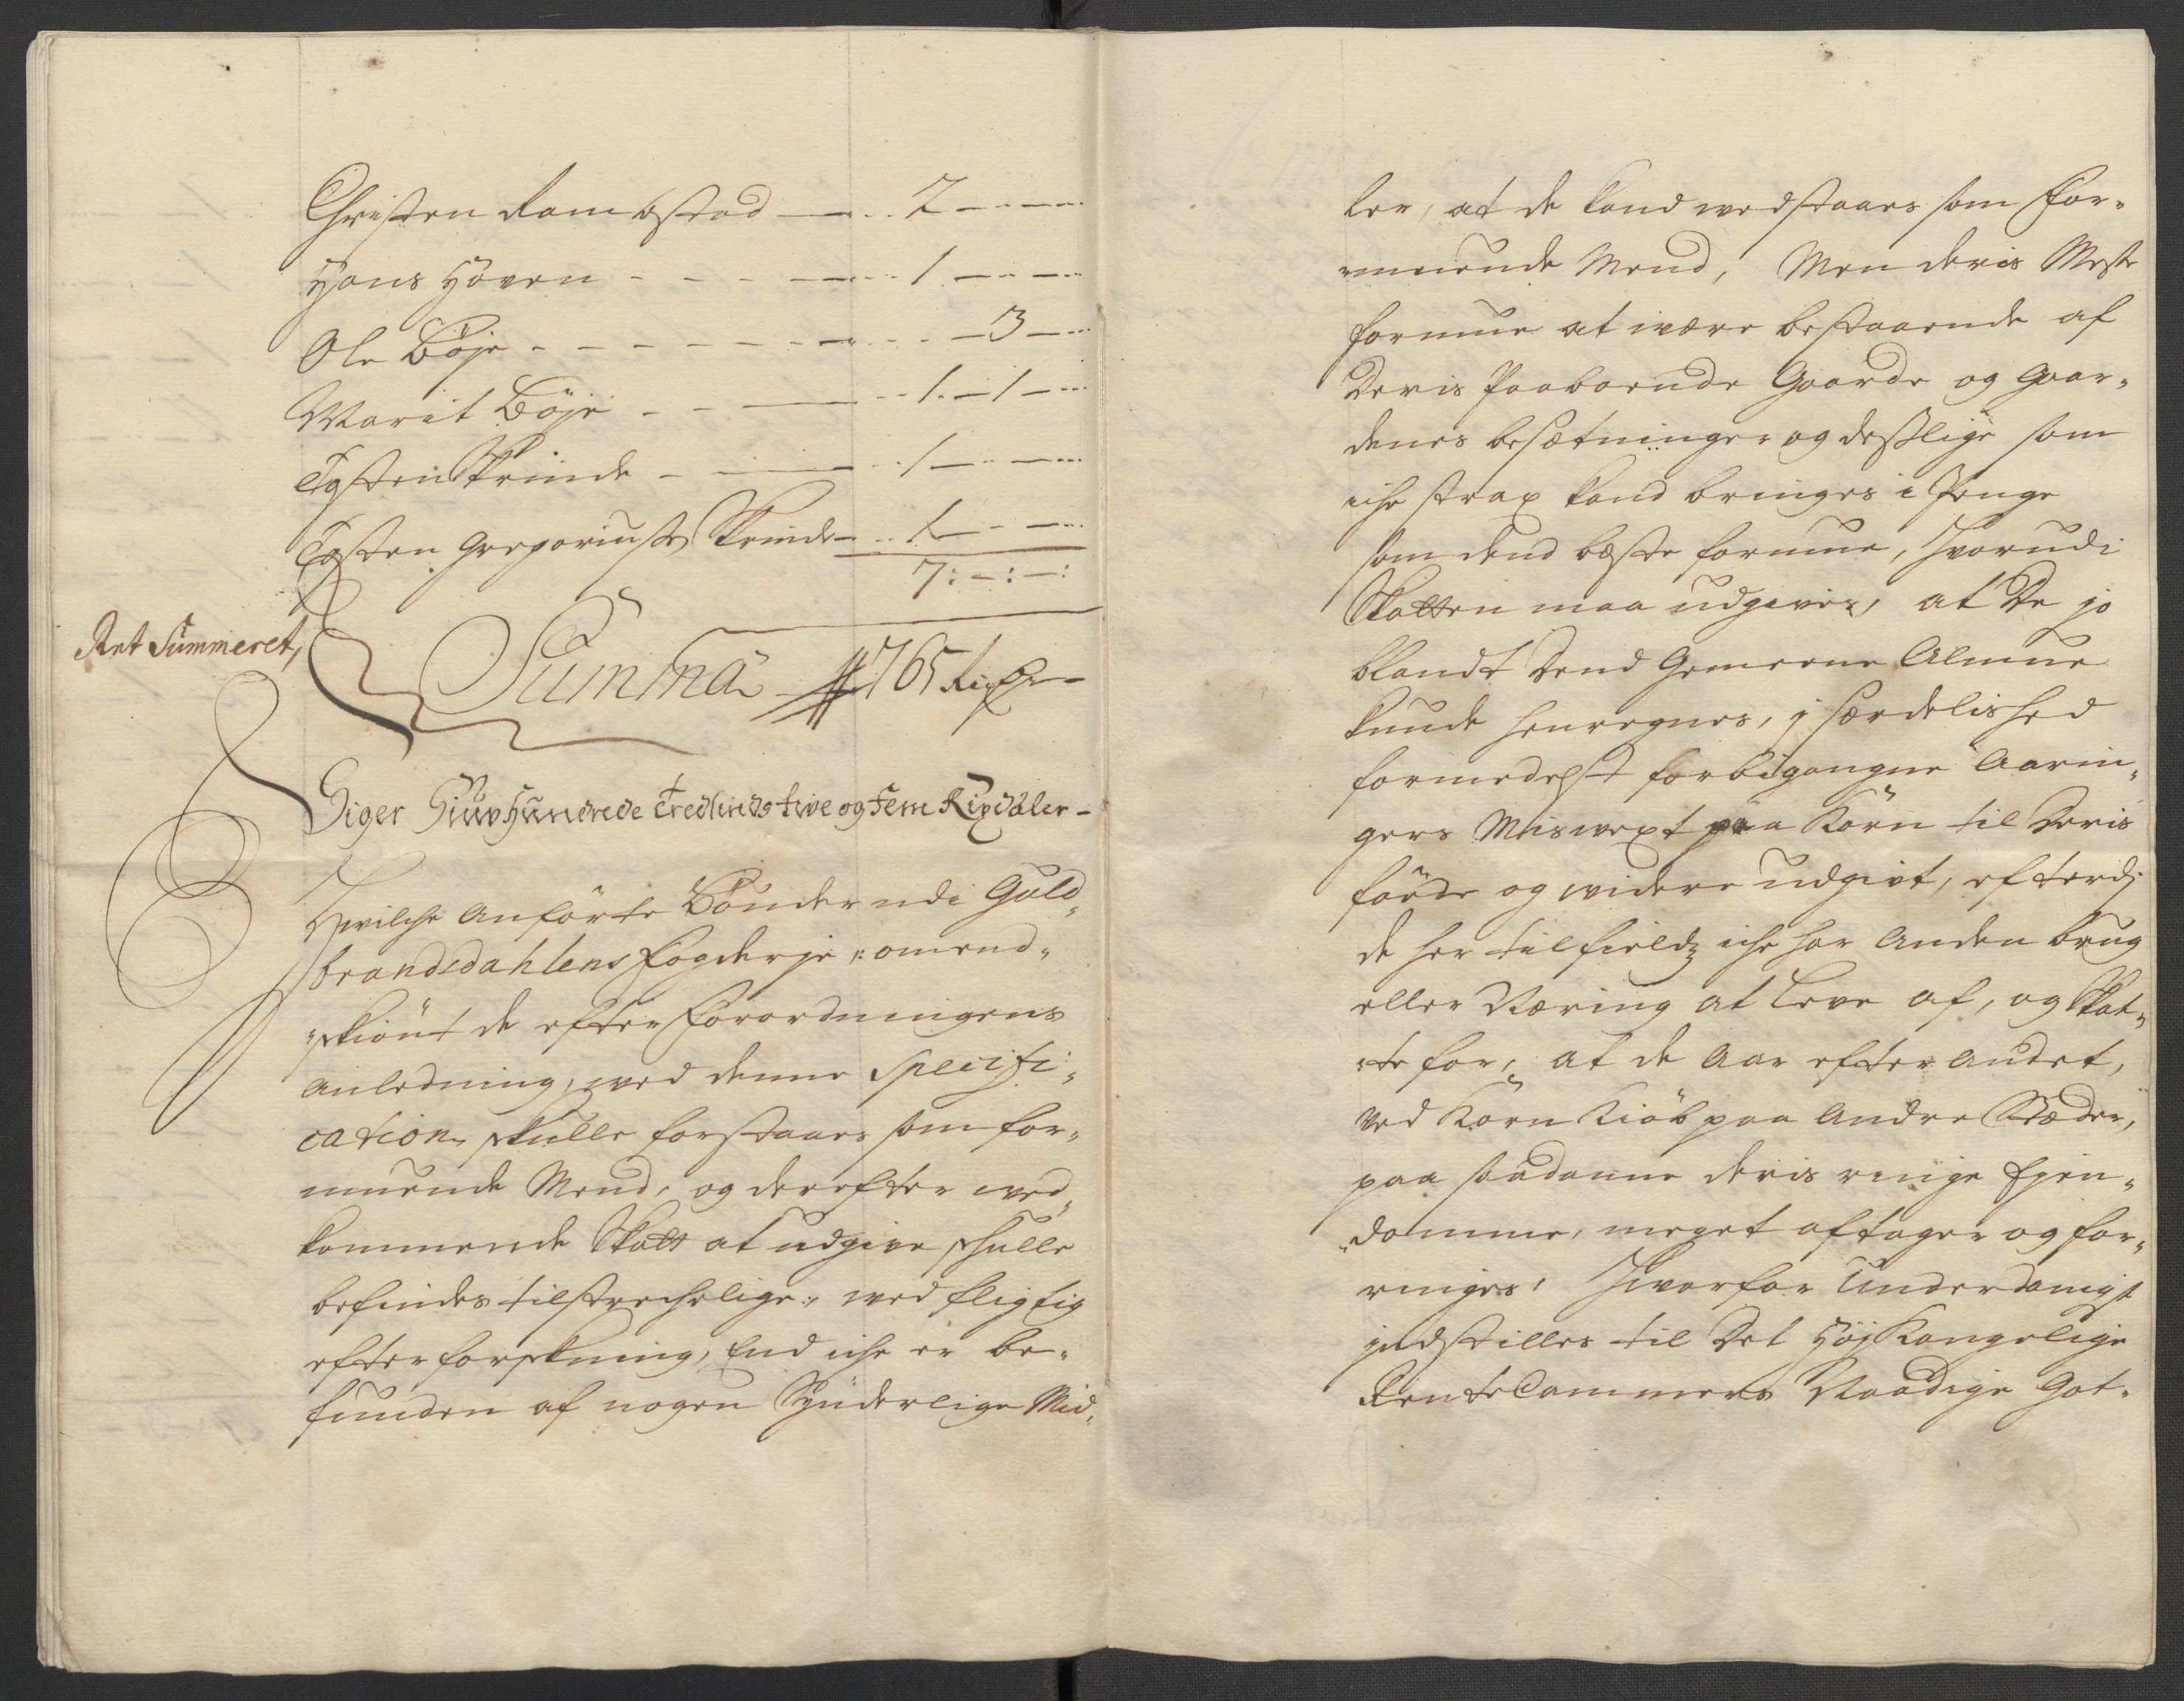 Christen Rambstad — 2 — —
Hans Hoven — 1 — —
Ole Böje — — 3 —
Marit Böje — 1 — 1 —
Tosten Skrinde — 1 — —
Tosten Gregoriuss: Skrinde — 1 — —
7: — : — :
Ret Summeret,
Summa 765 Rixdr —
Siger Siuvhundrede Tredsindstive og Fem Rixdaler —
Hvilche Anförte Bönder udi Guld„
brandsdahlens Fogderje /: omend„
„skiönt de efter Forordningens
Anledning, ved denne Specifi„
cation skulle forstaaes som for„
muende Mend, og derefter ved„
kommende Skatt at udgive skulle
befindes tilstrechelige :/ ved fligtig
efterforskning, End iche er be„
funden af nogen Synderlige Mid„
ler, at de kand vedstaaes som For„
muende Mend, Men deris Meste
formue at være bestaaende af
Deris Paaboende Gaarde og Gaar„
denes besætninger og desslige som
iche strax kand bringes i Penge
som dend beste formue, hvorudi
Skatten maa udgives, at De jo
blandt Dend Gemeene Almue
kunde henregnes, j særdelished
formedelst forbigangne Aarin„
gers Misvext paa Korn til Deris
föede og videre udgivt, efterdj
de her til fields iche har Anden brug
eller Næring at Leve af, og Skat„
„te for, at de Aar efter Andet,
ved Korn Kiöb paa Andre Stæder,
paa saadanne deris ringe Ejen„
„domme, meget aftager og for„
ringes, Hvorfor Underdanigst
indstilles til Det Höj Kongelige
Rente Cammers Naadige Got„